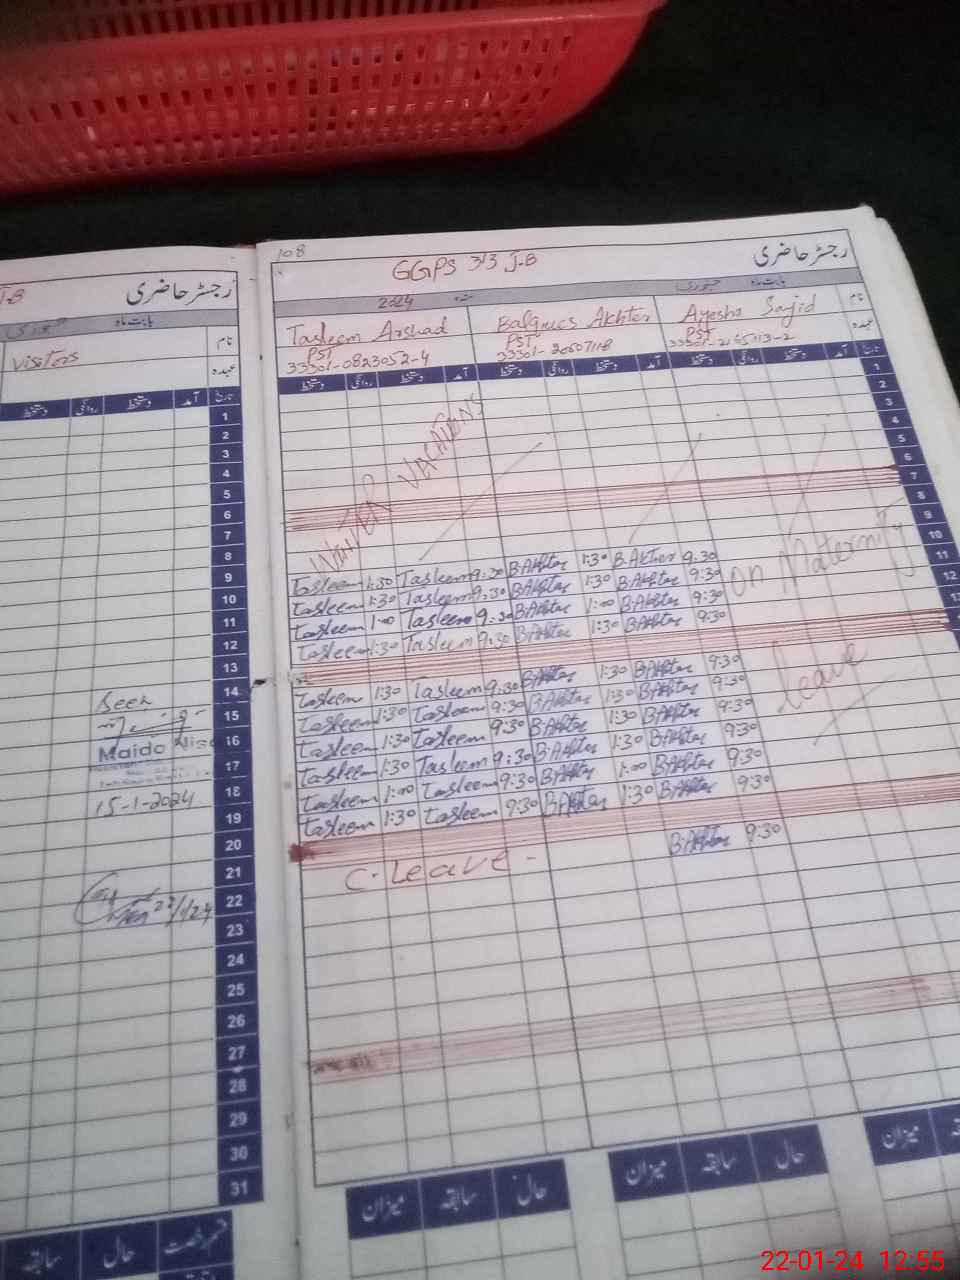 رجسٹر حاضری
بابت ماہ جنوری
نام
Visitors
عہدہ
تاریخ آمد دستخط روانگی دستخط
1
2
3
4
5
6
7
8
9
10
11
12
13
14
15
16
17
18
19
20
21
22
23
24
25
26
27
28
29
30
31
Seen
Maida
15-1-2024
22/1/24
سابقہ حال قسم رخصت
108
GGPS 313 J-B
رجسٹر حاضری
2024 بابت ماہ جنوری
Tasleem Arshad Balqees Akhter Ayesha Sajid نام
PST PST PST عہدہ
33301-0823052-4
دستخط روانگی دستخط آمد دستخط روانگی دستخط آمد دستخط روانگی دستخط آمد تاریخ
1
2
3
4
5
6
7
8
9
10
11
12
13
WINTER VACATIONS
Tasleem 1:30 Tasleem 9:30 B.Akhter 1:30 B.Akhter 9:30
Tasleem 1:30 Tasleem 9:30 B.Akhter 1:30 B.Akhter 9:30
Tasleem 1:00 Tasleem 9:30 B.Akhter 1:00 B.Akhter 9:30
Tasleem 1:30 Tasleem 9:30 B.Akhter 1:30 B.Akhter 9:30
on Maternity
leave
Tasleem 1:30 Tasleem 9:30 B.Akhter 1:30 B.Akhter 9:30
Tasleem 1:30 Tasleem 9:30 B.Akhter 1:30 B.Akhter 9:30
Tasleem 1:30 Tasleem 9:30 B.Akhter 1:30 B.Akhter 9:30
Tasleem 1:30 Tasleem 9:30 B.Akhter 1:30 B.Akhter 9:30
Tasleem 1:00 Tasleem 9:30 B.Akhter 1:00 B.Akhter 9:30
Tasleem 1:30 Tasleem 9:30 B.Akhter 1:30 B.Akhter 9:30
C. Leave - B.Akhter 9:30
میزان سابقہ حال میزان سابقہ حال میزان
22-01-24 12:55